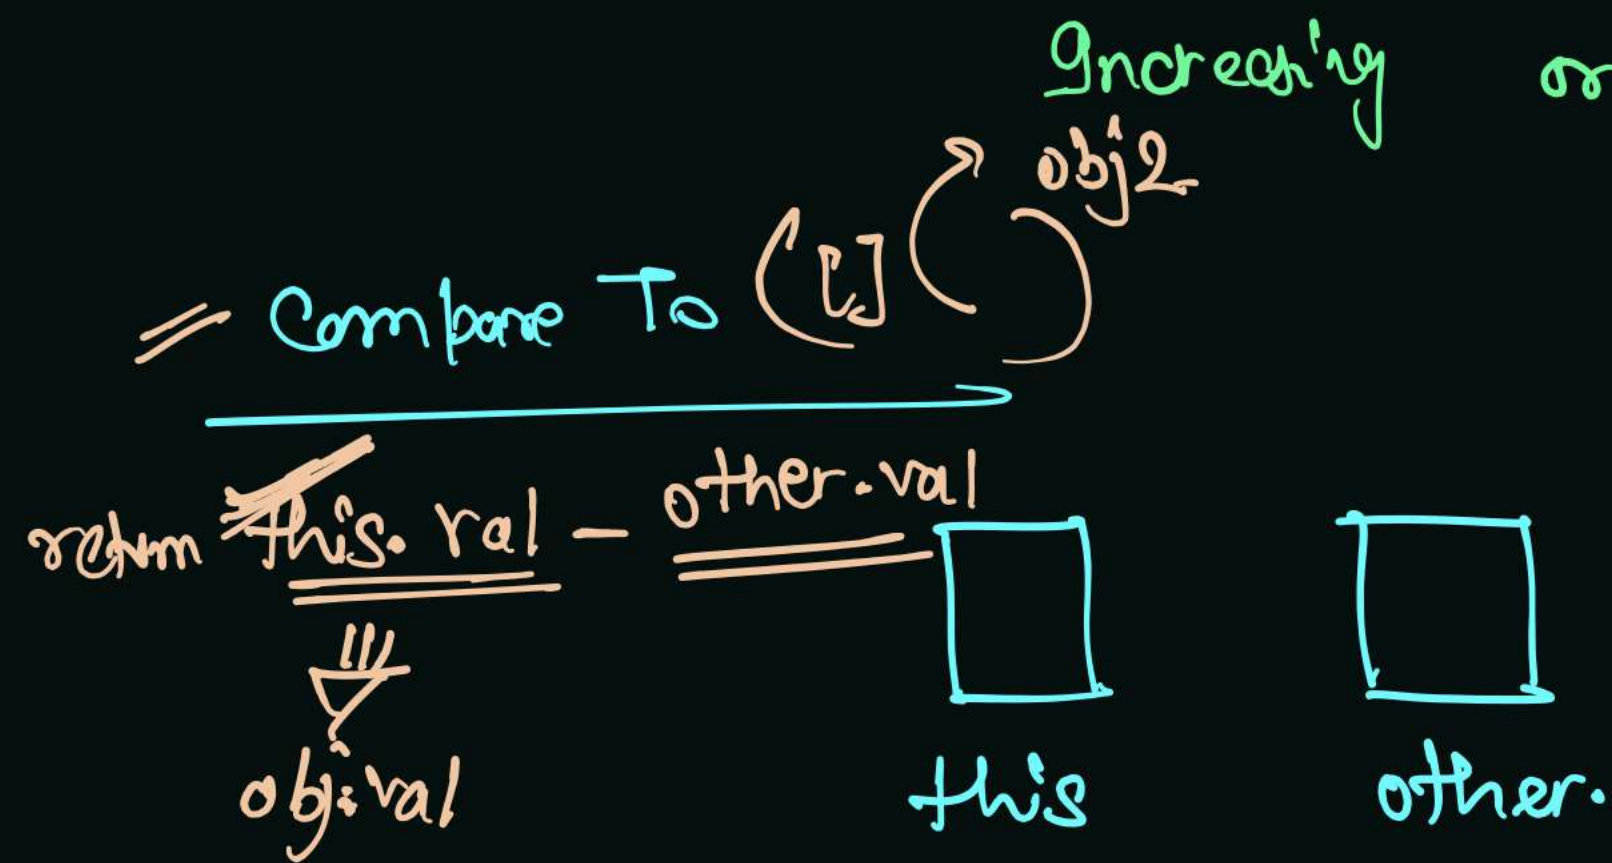 Increasing or
obj2
= Compare To ([] )
return this.val - other.val
obj.val
this other.